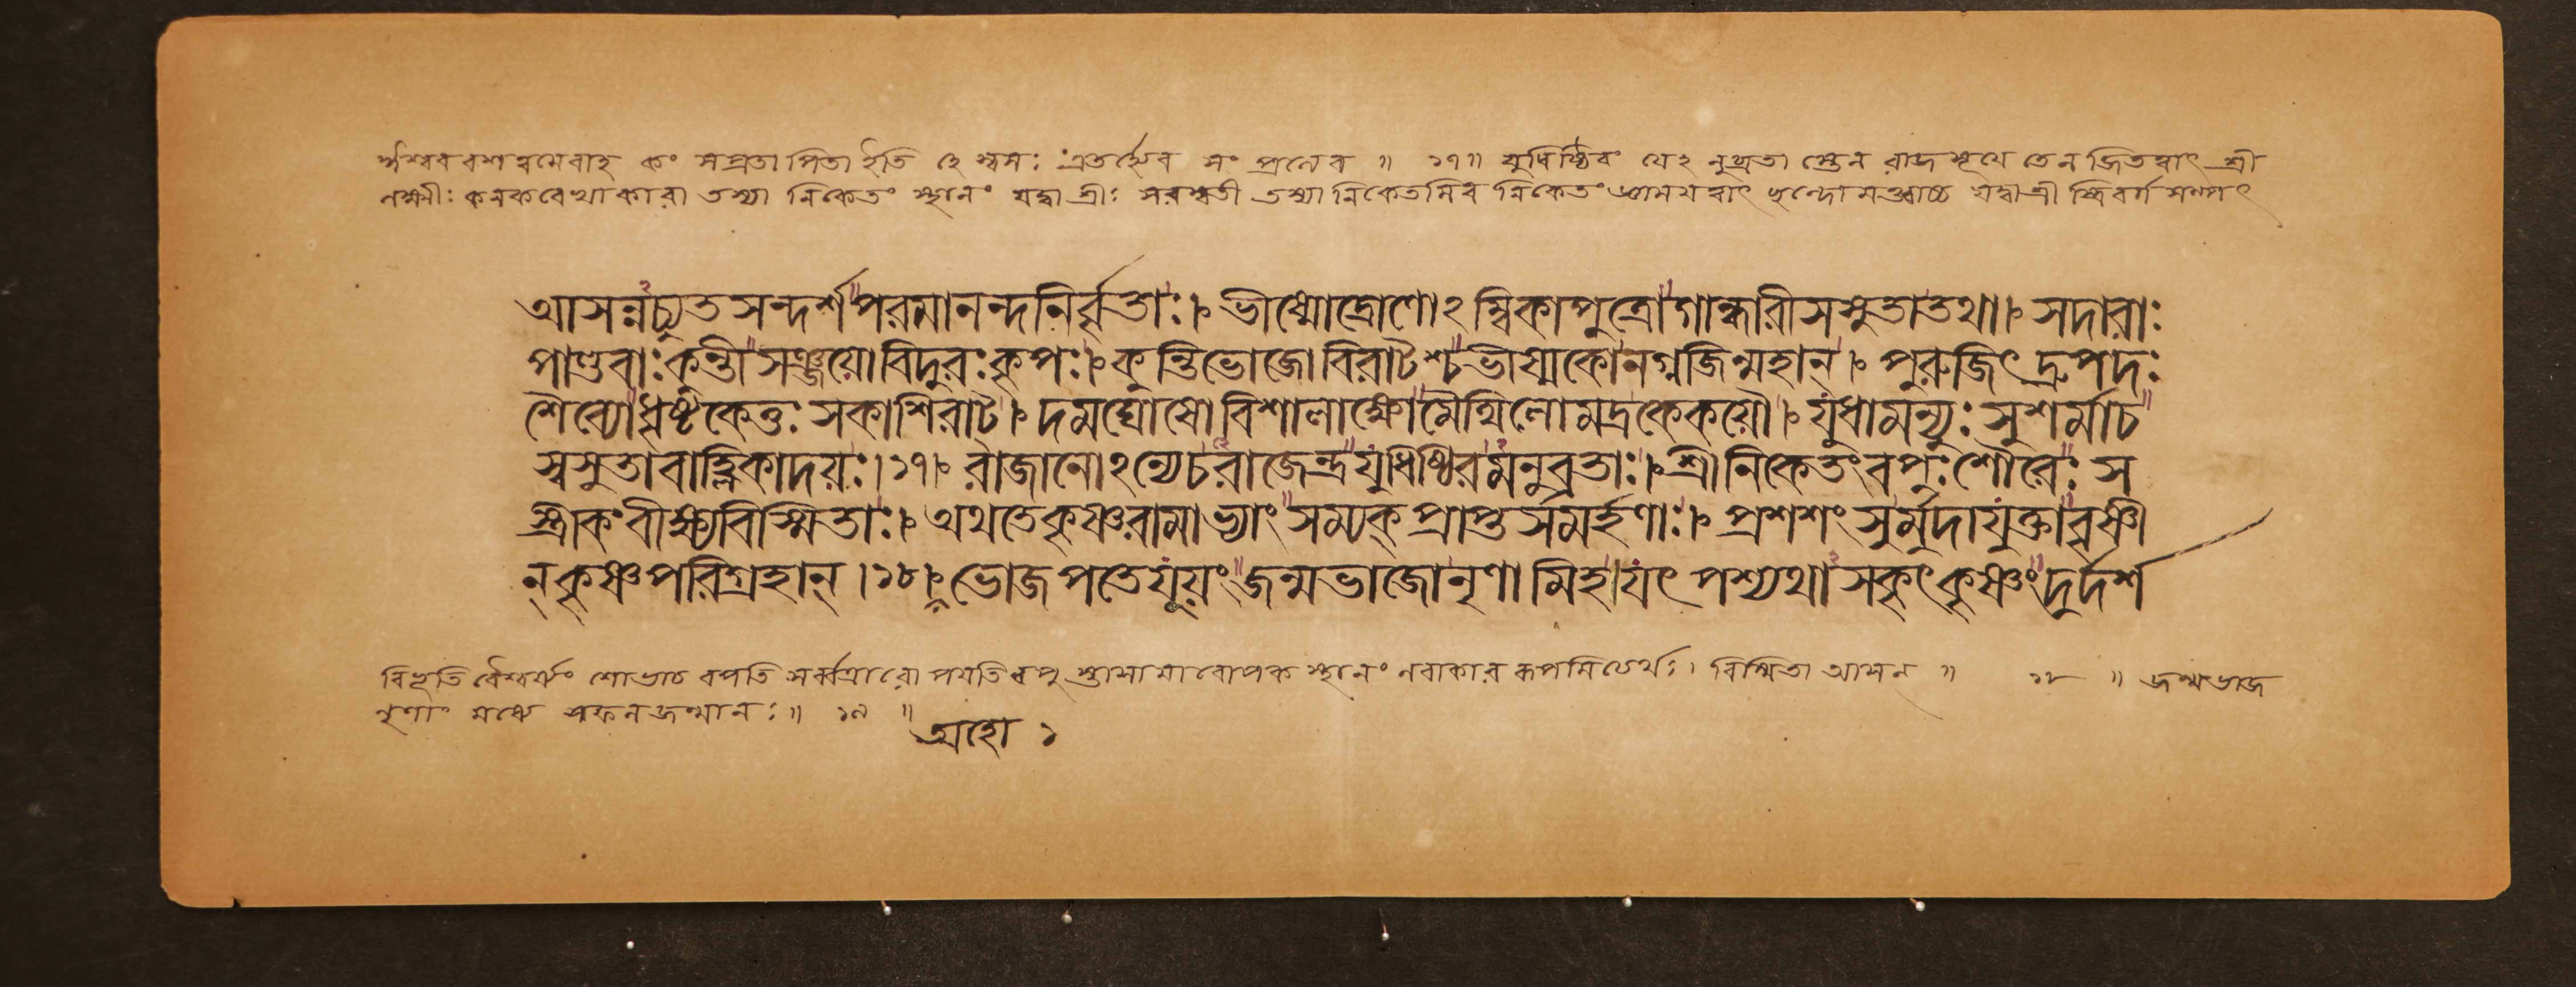 র্ষশ্বববশত্বমেবাহ কং সপ্রতা পিতা ইতি হে শ্বসঃ এতর্হ্যেব সং প্রত্যেব ॥ ১৭॥ যুধিষ্ঠিবং যেঽ নুব্রতা স্তেন রাজসূয়ে তেন জিতত্বাৎ শ্রী
লক্ষ্মীঃ কনকবেখাকারা তস্যা নিকেতং স্থানং যদ্বা শ্রীঃ সরস্বতী তস্যা নিকেতমিব নিকেতং যদ্বা শ্রী স্ত্রিবর্গ সম্পৎ
আসন্নচ্যুতসন্দর্শপরমানন্দনির্বৃতাঃ।৹ ভীষ্মোদ্রোণোঽম্বিকাপুত্রোগান্ধারীসসুতাতথা।৹ সদারাঃ
পাণ্ডবাঃকন্তীসঞ্জয়োবিদুরঃকৃপঃ।৹ কুন্তিভোজোবিরাটশ্চভীষ্মকোনগ্নজিন্মহান্।৹ পুরুজিৎদ্রুপদঃ
শৈব্যোধৃষ্টকেতুঃসকাশিরাট।৹ দমঘোষোবিশালাক্ষোমৈথিলোমদ্রকেকয়ৌ।৹ যুধামন্যুঃসুশর্মাচ
সসুতাবাহ্লিকাদয়ঃ।১৭।৹ রাজানোঽন্যেচরাজেন্দ্রযুধিষ্ঠিরমনুব্রতাঃ।৹ শ্রীনিকেতংবপুঃশৌরেঃস
স্ত্রীকংবীক্ষ্যবিস্মিতাঃ।৹ অথতেকৃষ্ণরামাভ্যাংসম্যক্প্রাপ্তসমর্হণাঃ।৹ প্রশশংসুর্মুদাযুক্তাবৃষ্ণী
ন্কৃষ্ণপরিগ্রহান্।১৮।৹ ভোজপতেযূয়ংজন্মভাজোনৃণামিহ।যৎপশ্যথাসকৃৎকৃষ্ণংদুর্দর্শ
বিভূতি র্বৈশ্বর্যং শোভাচ বপতি পযতি বপু স্থানং কপমিত্যর্থঃ। বিস্মিতা আসন্ ॥ ১৮ ॥ জন্মভাজ
নৃণাং মধ্যে সফলজন্মানঃ॥ ১৯ ॥
অহো ১